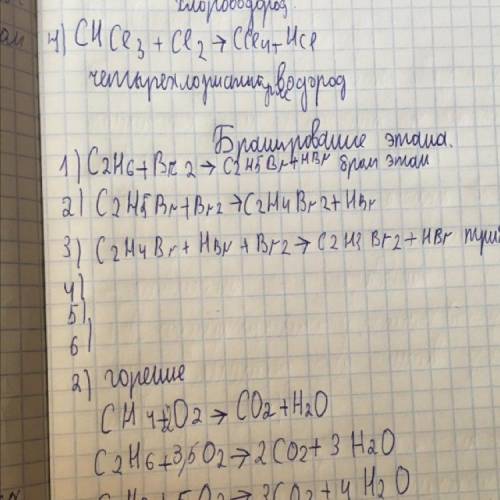 хлороводород.
4) CHCl3 + Cl2 → CCl4 + HCl
четыреххлористый водород
Бромирование этана.
1) C2H6 + Br2 → C2H5Br + HBr бром этан
2) C2H5Br + Br2 → C2H4Br2 + HBr
3) C2H4Br + HBr + Br2 → C2H3Br2 + HBr
4)
5)
6)
2) горение
CH4 + 2O2 → CO2 + H2O
C2H6 + 3,5O2 → 2CO2 + 3H2O
5O2 → 3CO2 + 4H2O